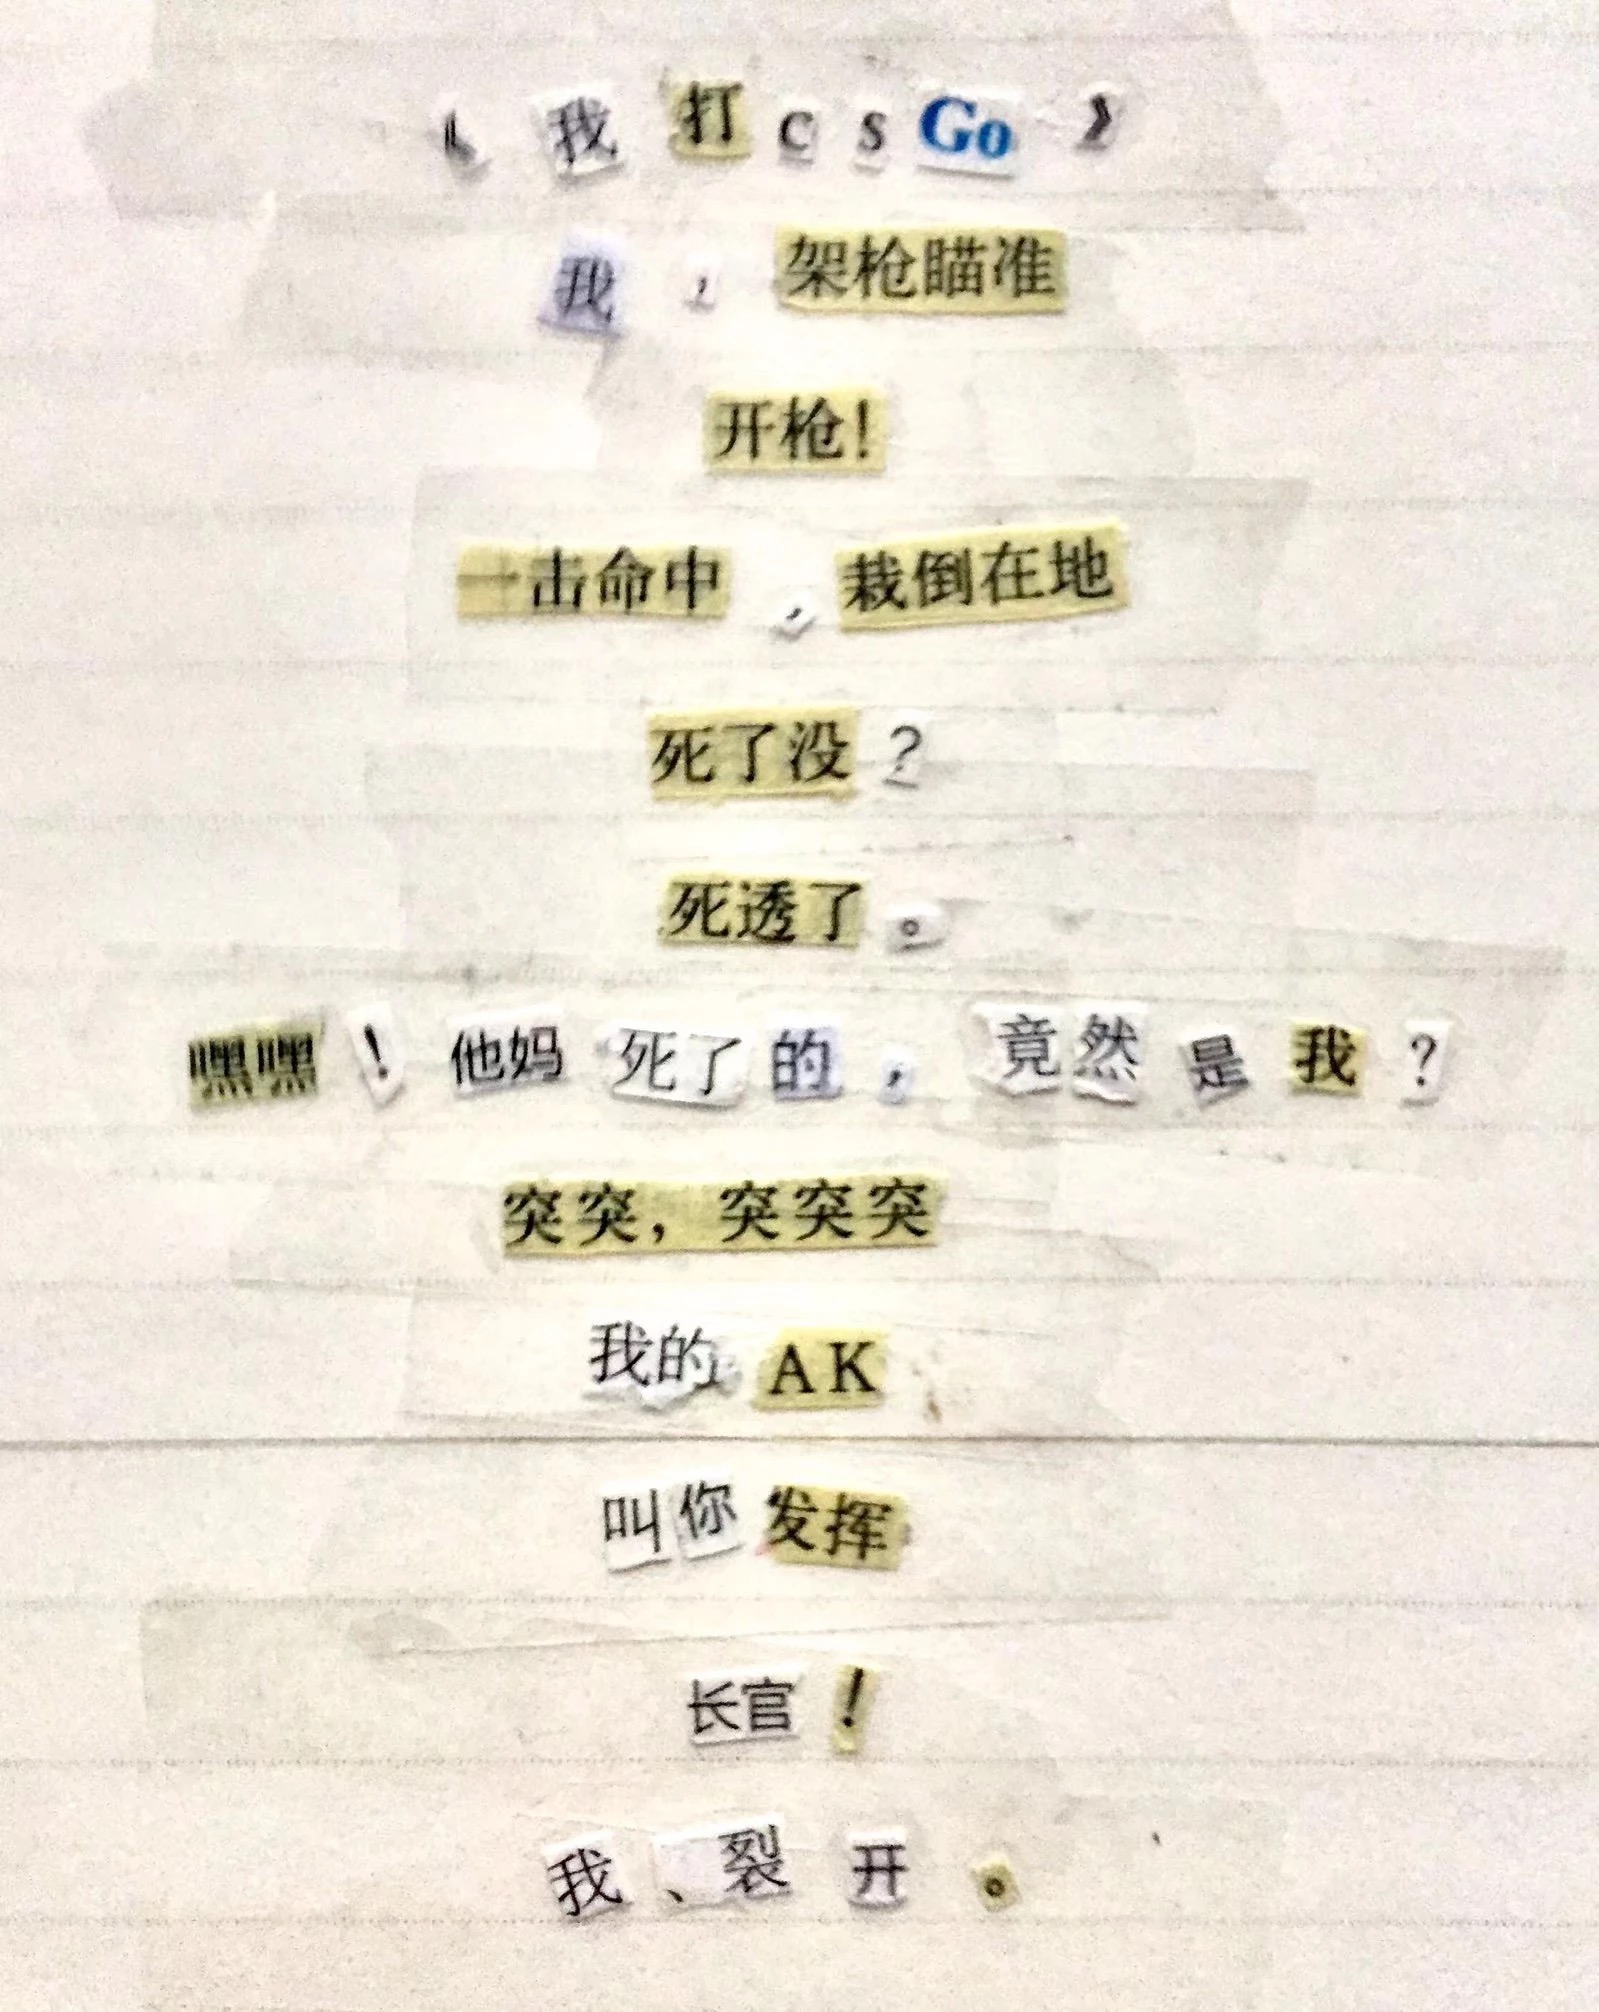 《我打csGo》
我，架枪瞄准
开枪！
一击命中，栽倒在地
死了没？
死透了。
嘿嘿！他妈死了的，竟然是我？
突突，突突突
我的AK
叫你发挥
长官！
我、裂开。